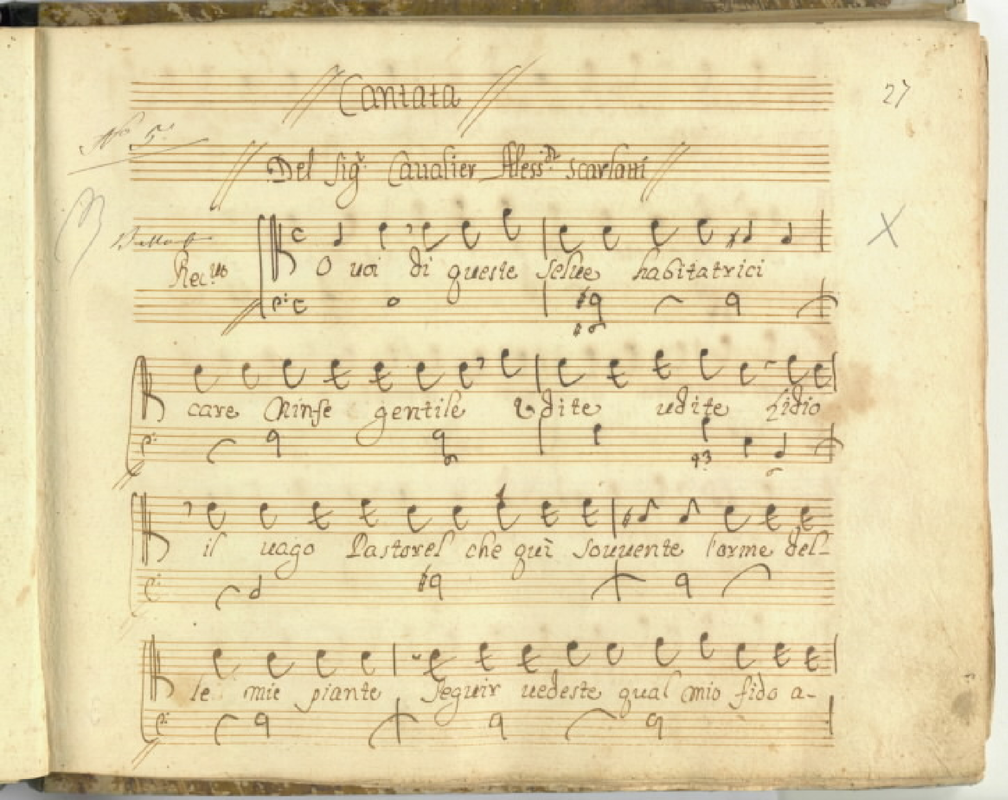 27
Cantata
No. 5.
Del Sigr. Cavalier Aless.dr Scarlatti
Rec.vo O uoi di queste Selue habitatrici
care Ninfe gentile Udite udite Lidio
43
il uago Pastorel che quì souuente l'orme del-
le mie piante Seguir uedeste qual mio fido a-